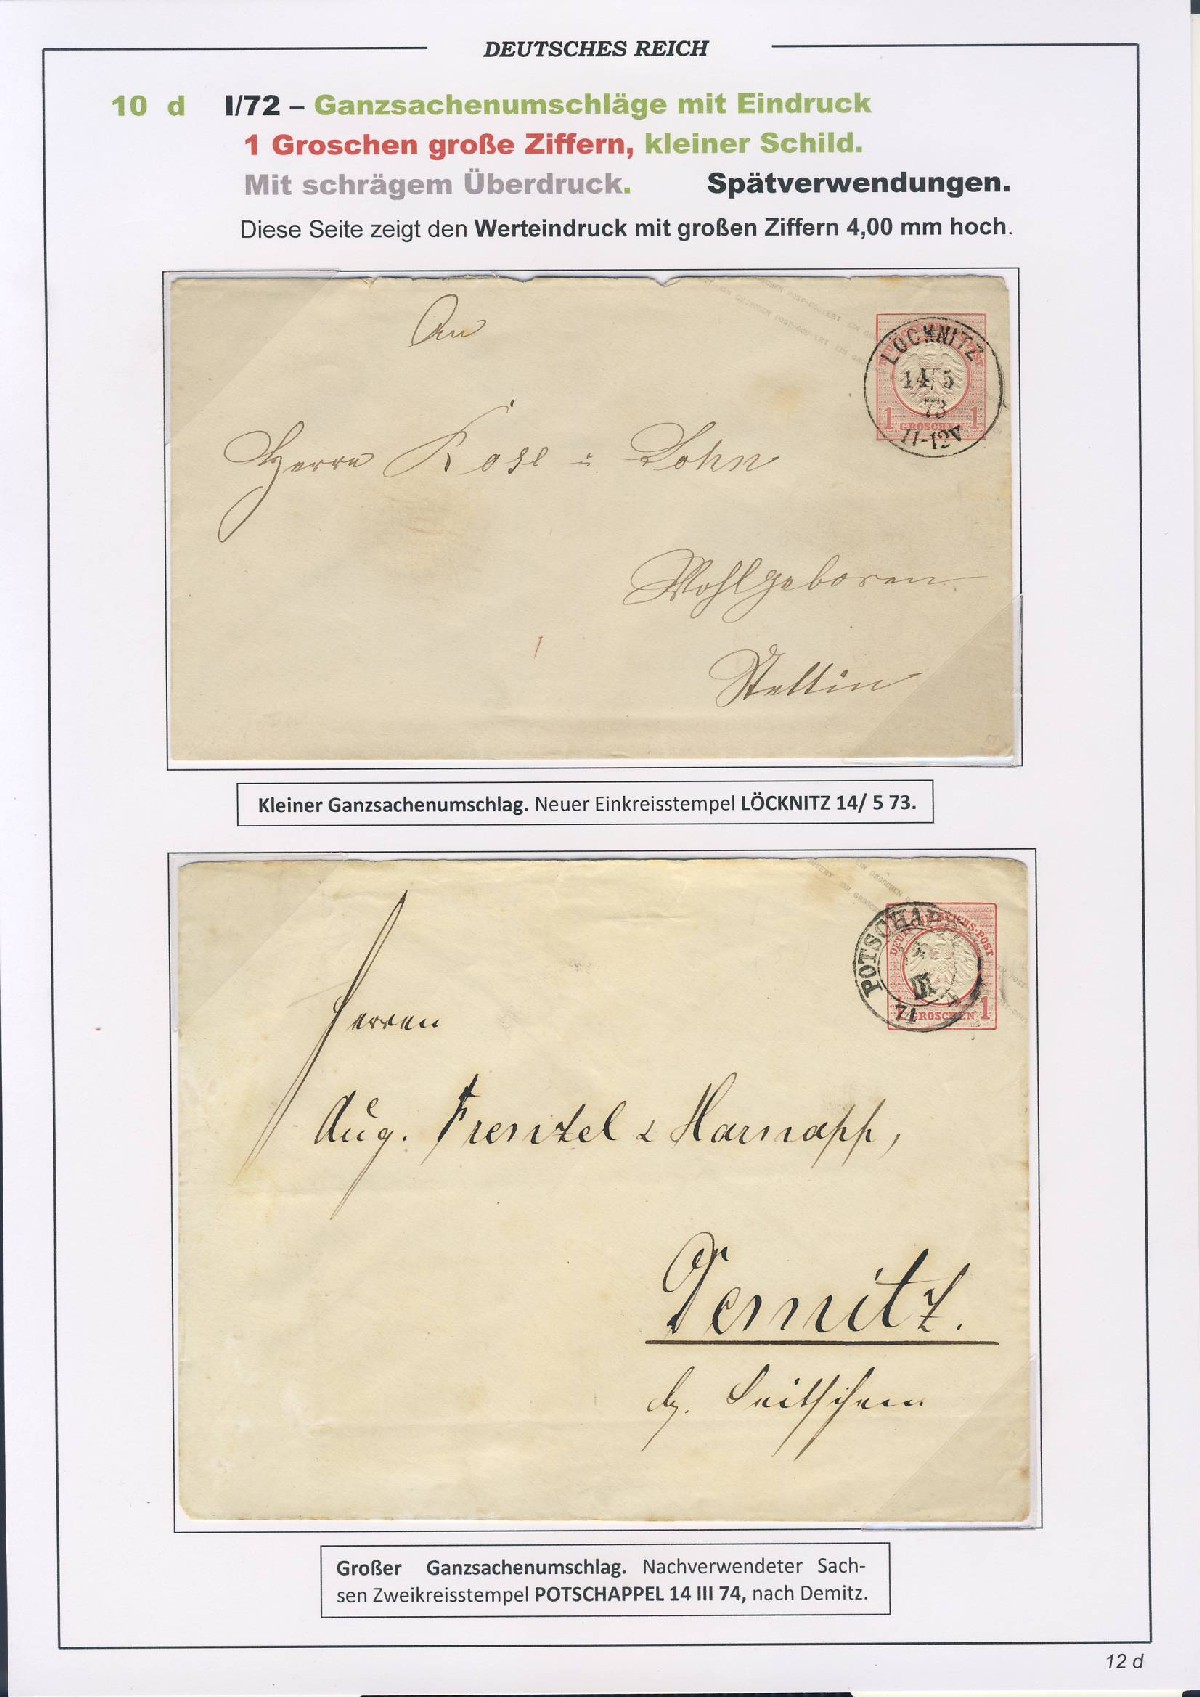 DEUTSCHES REICH
10 d I/72 – Ganzsachenumschläge mit Eindruck
1 Groschen große Ziffern, kleiner Schild.
Mit schrägem Überdruck. Spätverwendungen.
Diese Seite zeigt den Werteindruck mit großen Ziffern 4,00 mm hoch.
An
LÖCKNITZ
14/5
73
11-12V
1 GROSCHEN 1
Herrn Rose & Sohn
Wohlgeboren
Stettin
Kleiner Ganzsachenumschlag. Neuer Einkreisstempel LÖCKNITZ 14/ 5 73.
POTSCHAPP
III
74
GROSCHEN 1
Herren
Aug. Frenzel & Harnapp,
Demitz.
Großer Ganzsachenumschlag. Nachverwendeter Sach-
sen Zweikreisstempel POTSCHAPPEL 14 III 74, nach Demitz.
12 d